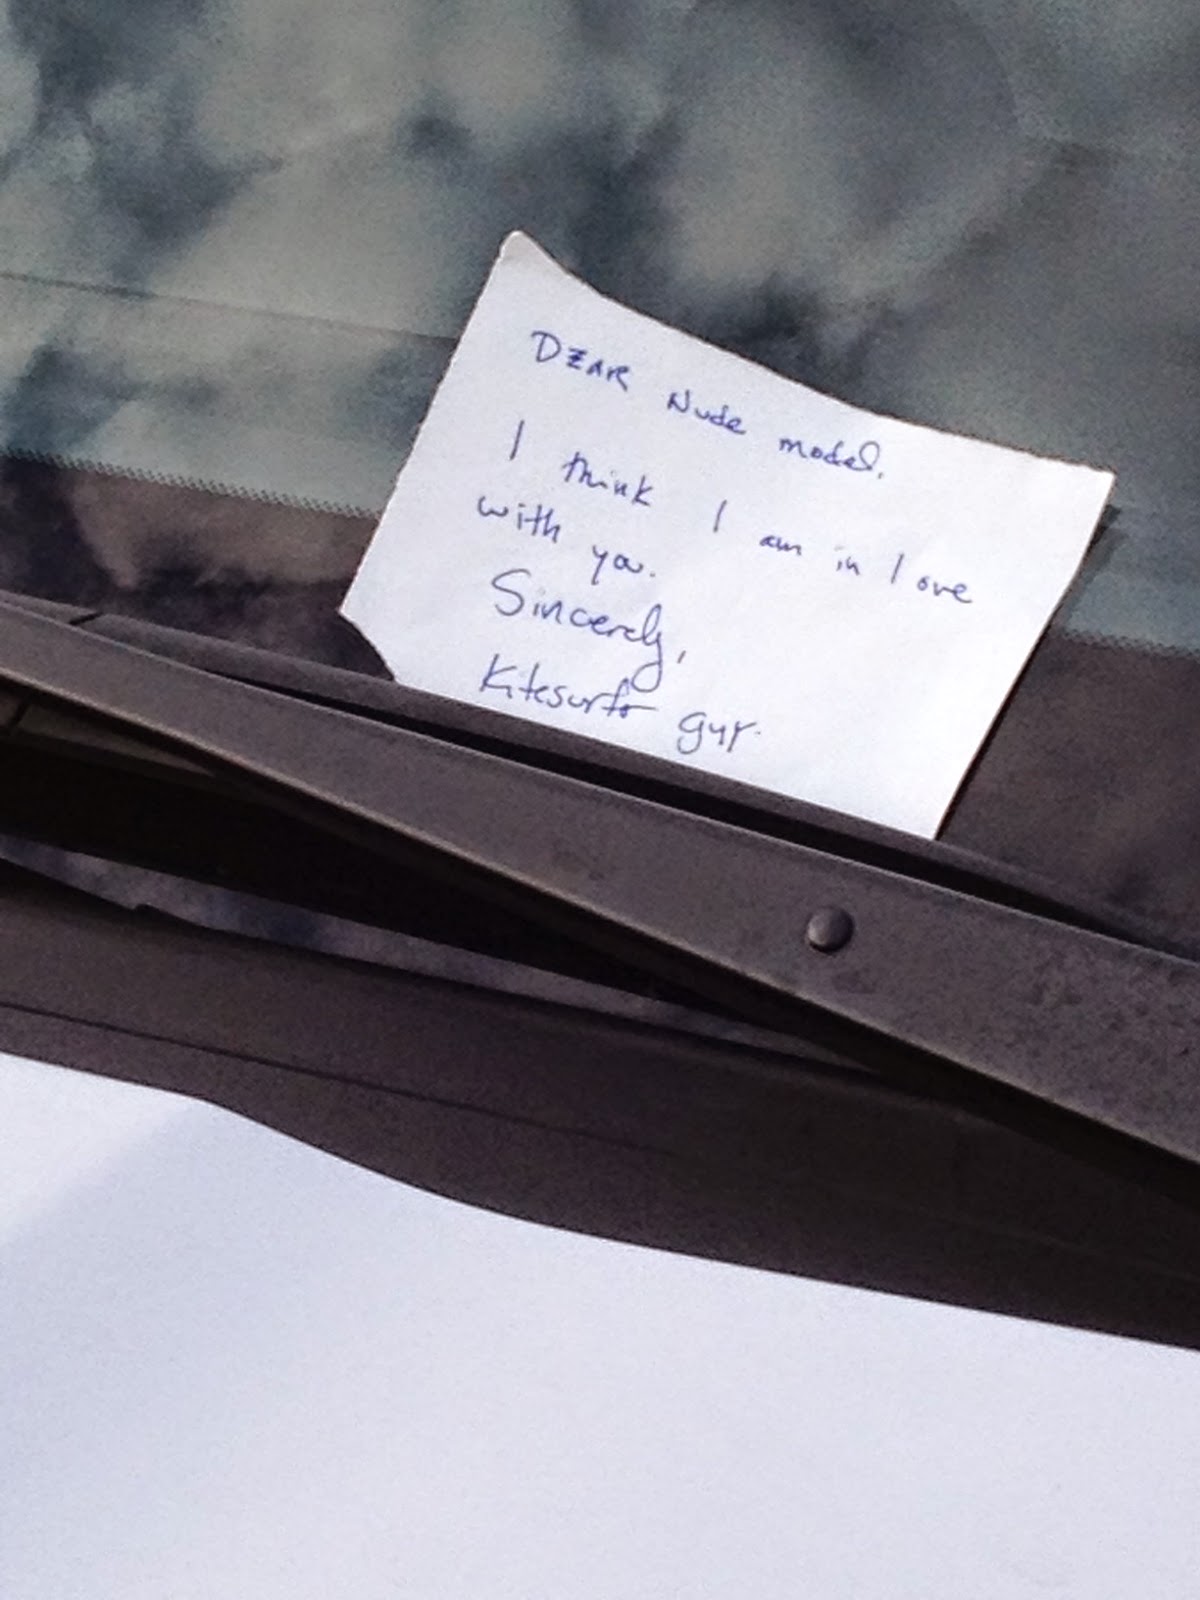 Dear Nude model.
I think I am in love
with you.
Sincerely,
Kitesurfer guy.